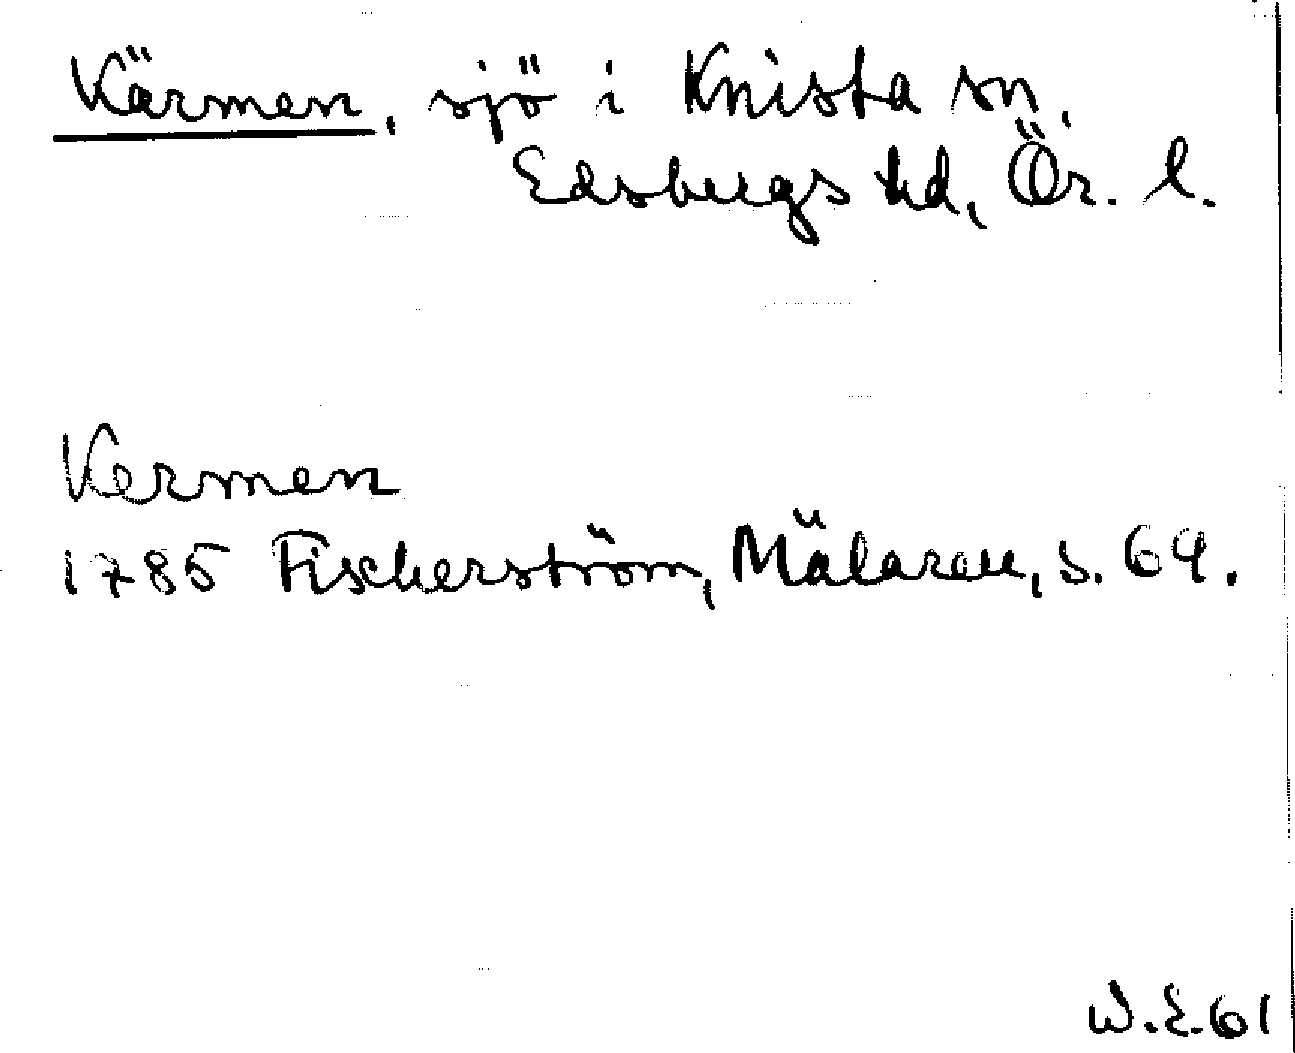 Kärmen, sjö i Knista sn,
Edsbergs hd, Ör. l.
Kermen
1785 Fischerström, Mälaren, s. 69.
W.E. 61